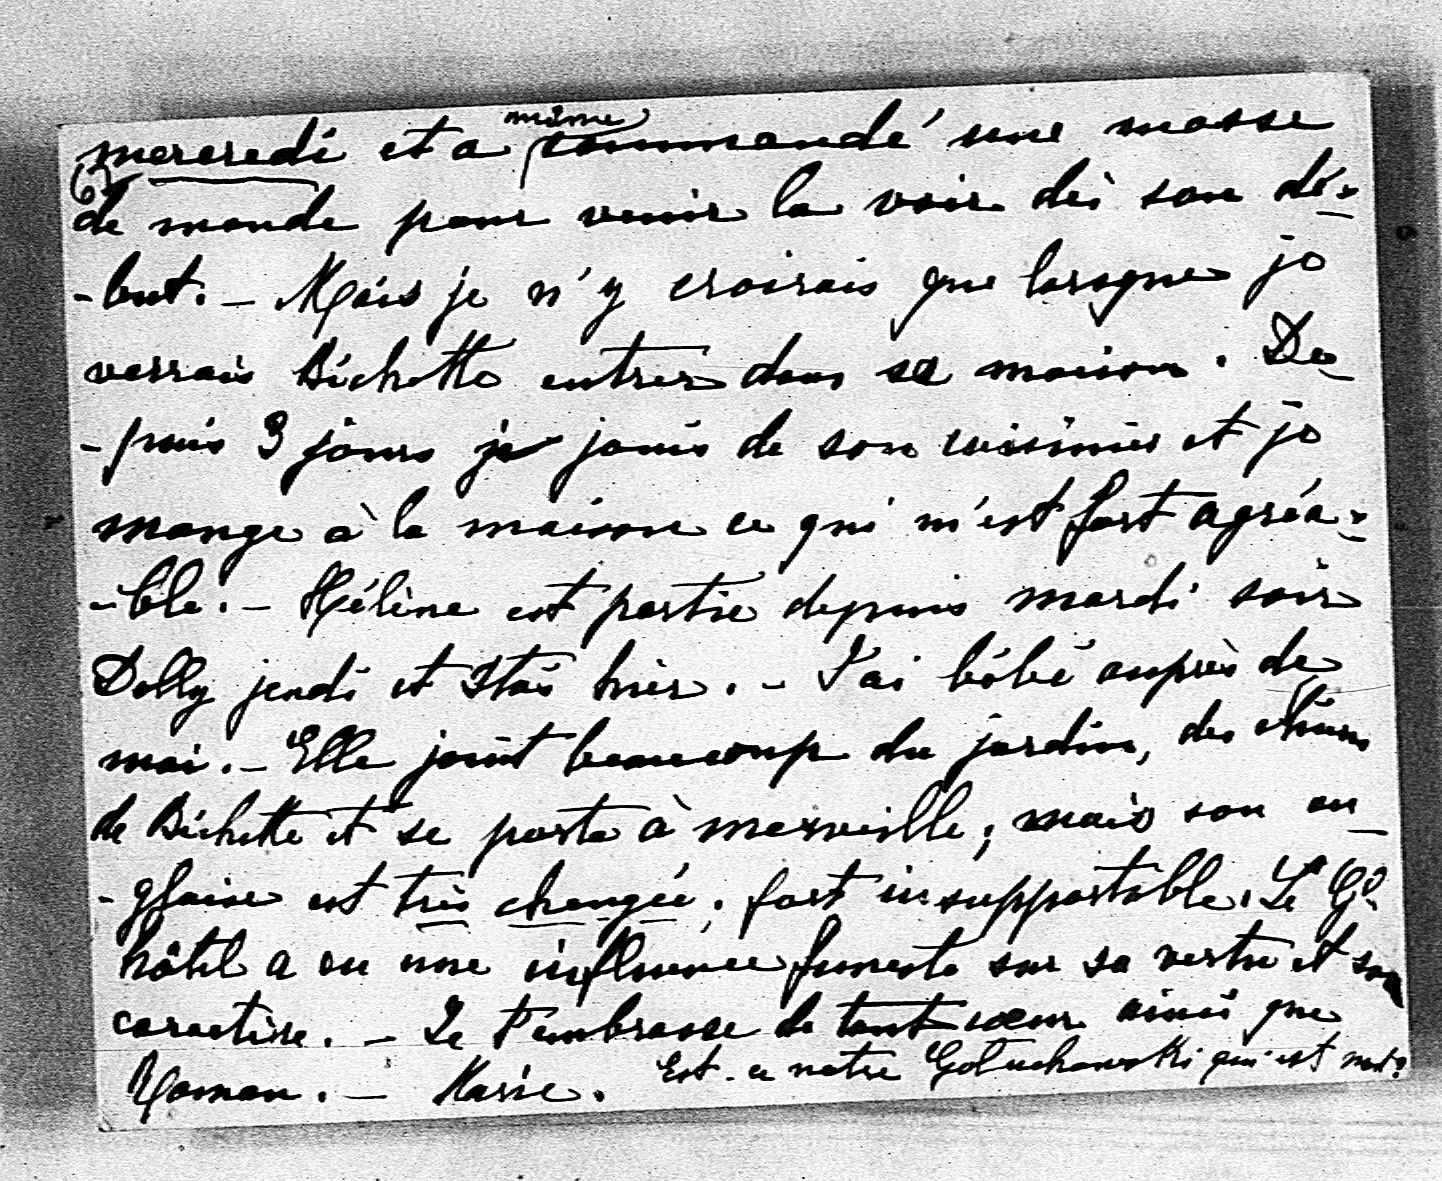 même
mercredi et a commandé une masse
de monde pour venir la voir dès son dé=
-but. – Mais je n'y croirais que lorsque je
verrais Bichette entrer dans sa maison. De
-puis 3 jours je jouis de son cuisinier et je
mange à la maison ce qui m'est fort agréa=
-ble. – Hélène est partie depuis mardi soir
Dolly jeudi et Staś hier. – J'ai bébé auprès de
moi. – Elle jouit beaucoup du jardin, des chiens
de Bichette et se porte à merveille; mais son an
-glaise est très changée, fort insupportable. Le Gd
hôtel a eu une influence funeste sur sa vertu et son
caractère. – Je t'embrasse de tout cœur ainsi que
Roman. – Marie. Est-ce notre Gołuchowski qui est mort?